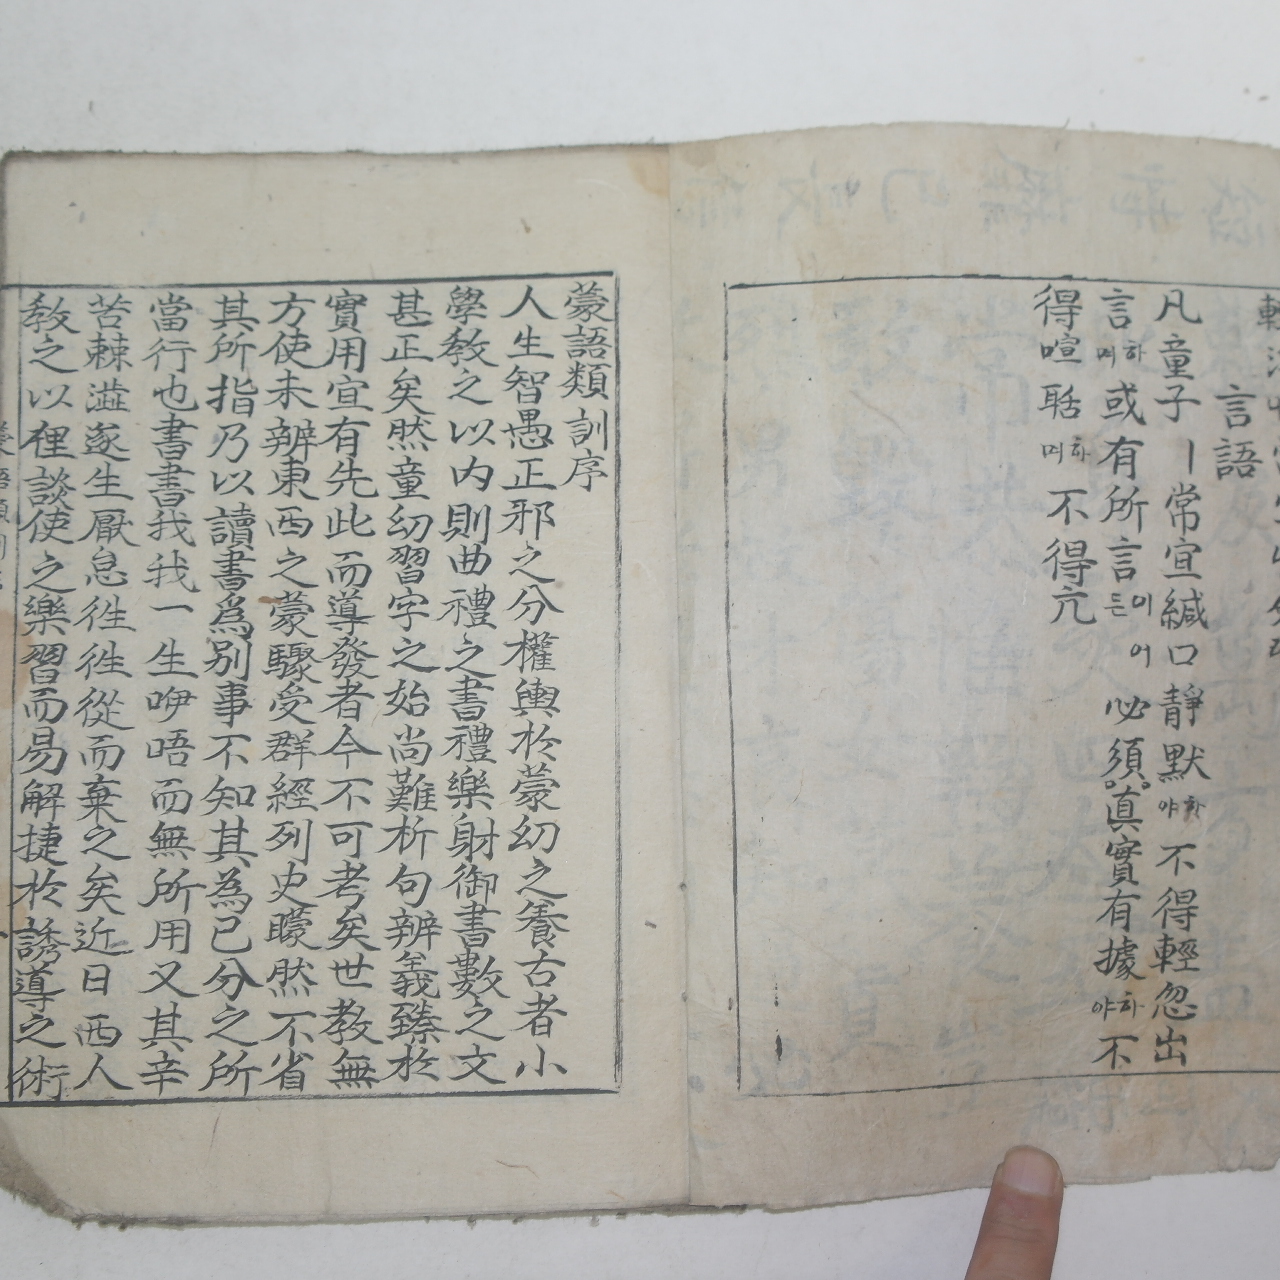 言語
凡童子ㅣ常宜緘口靜默하야不得輕忽出
言하며或有所言이어든必須眞實有據하야不
得喧聒하며不得亢
蒙語類訓序
人生智愚正邪之分權輿於蒙幼之養古者小
學教之以內則曲禮之書禮樂射御書數之文
甚正矣然童幼習字之始尚難析句辨義臻於
實用宜有先此而導發者今不可考矣世教無
方使未辨東西之蒙驟受群經列史矇然不省
其所指乃以讀書爲別事不知其為己分之所
當行也書書我我一生咿唔而無所用又其辛
苦棘澁逐生厭怠徃徃從而棄之矣近日西人
教之以俚談使之樂習而易解捷於誘導之術